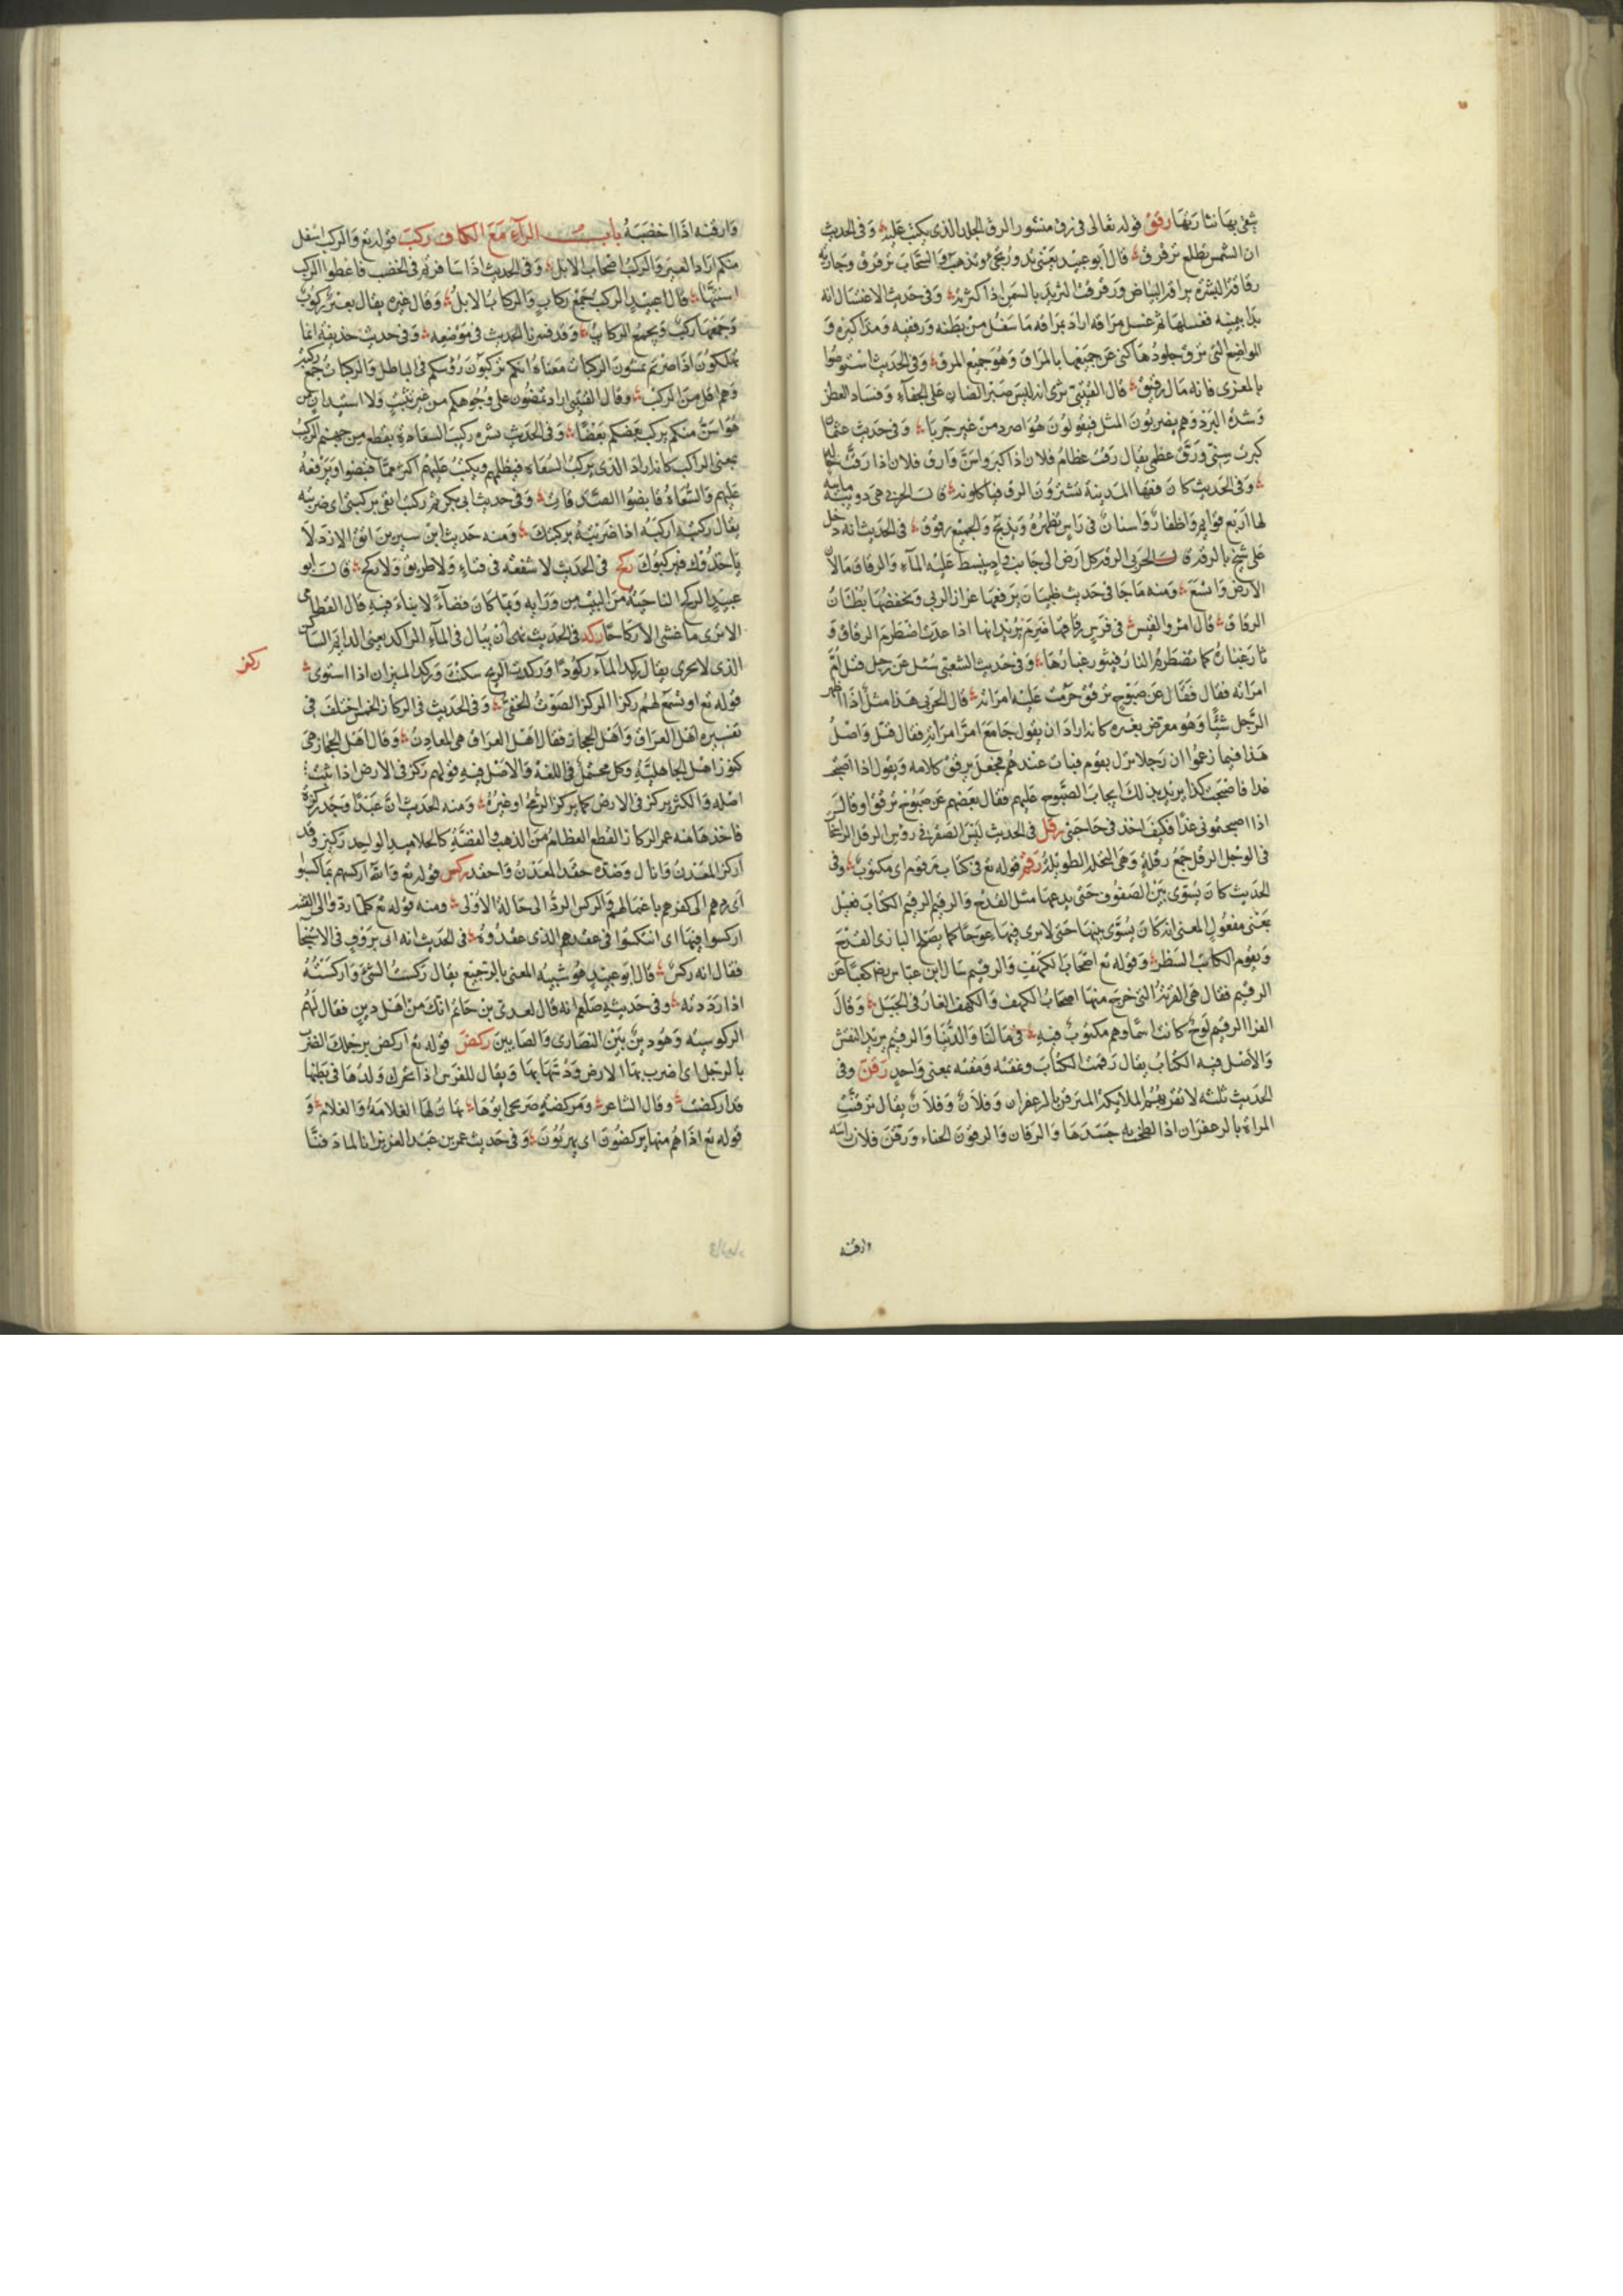 شقى بها نثا ربها رقق قوله تعالى فى رق منشور الرق الجلد الذى يكتب عليه وفى الحديث
ان الشمس تطلع ترقرق قال ابو عبيد يعنى تدور تجئ وتذهب والسحاب ترقرق وجارية
رقراقة البشرة براقة البياض ورقرقت الثريد بالسمن اذا كثرته وفى حديث الاغتسال انه
بدا بيمينه فغسلها ثم غسل مراقه اراد بمراقه ما سفل من بطنه ورفغيه ومذاكيره و
المواضع التى ترق جلودها كنى عن جميعها بالمراق وهو جميع المرق وفى الحديث استوصوا
بالمعزى فانه مال رقيق قال القتيبى يرى انه ليس صبر الضان على الجفاء وفساد العطن
وشدة البرد وهم يضربون المثل فيقولون هو اصرد من عنز جربا وفى حديث عثمان
كبرت سنى ورق عظمى يقال رقت عظام فلان اذا كبر واسن وارق فلان اذا رقت حاله
وفى الحديث كان فقها المدينة يشترون الرق فياكلونه قال الحربى هى دويبة مايية
لها اربع قوايم واظفار واسنان فى راس تظهره وتذبح والجميع رقوق فى الحديث انه دخل
على شيخ بالرقة قال الحربى الرقة كل ارض الى جانب واد ينبسط عليه الماء والرقاق مالان
الارض واتسع ومنه ما جا فى حديث ظبيان يرفعها عزاز الربى ويخفضها بطنان
الرقاق قال امرو القيس فى فرس رقاقها ضرم يريد انها اذا عدت اضطرم الرقاق و
ثار غبار كما تضطرم النار فيثور غبارها وفى حديث الشعبى سئل عن رجل قبل ام
امراته فقال فقال عن صبوح ترقق حرمت عليه امراته قال الحربى هذا مثل اذا اظهر
الرجل شيًا وهو معرض بغيره كانه اراد ان يقول جامع ام امراته فقال قبل واصل
هذا فيما زعموا ان رجلا نزل بقوم فبات عندهم فجعل يرقق كلامه ويقول اذا اصبحت
غدا فاصبحت كذا يريد بذلك ايجاب الصبوح عليهم فقال بعضهم عن صبوح ترقق او قال
اذا اصبحتمونى غدا فكيف اخذ فى حاجتى رقل فى الحديث ليس الصقر فى رؤس الرقل الراسخات
فى الوحل الرقل جمع رقلة وهى النخلة الطويلة رقم قوله تع فى كتاب مرقوم اى مكتوب وفى
الحديث كان يسوى بين الصفوف حتى يدعها مثل القدح والرقيم الرقيم الكتاب فعيل
بمعنى مفعول المعنى انه كان يسوى بينها حتى لا يرى فيها عوجا كما يصلح البارى القدح
ويقوم الكاتب السطر وقوله تع اصحاب الكهف والرقيم سال ابن عباس رضه كعبا عن
الرقيم فقال هى القرية التى خرج منها اصحاب الكهف والكهف الغار فى الجبل وقال
الفرا الرقيم لوح كانت اسماوهم مكتوب فيه والرقيم يريد النقش
والاصل فيه الكتاب يقال رقمت الكتاب ونمقته بمعنى واحد رقن وفى
الحديث ثلثة لا تقربهم الملايكة المترقن بالزعفران وفلان وفلان يقال ترقنت
المراة بالزعفران اذا تلطخ به جسدها والرقان والرقون الحناء ورقن فلان راسه
وارقنه
وارقنه اذا خضبه باب الراء مع الكاف ركب قوله تع والركب اسفل
منكم اراد العير والركب اصحاب الابل وفى الحديث اذا سافرتم فى الخصب فاعطوا الركب
اسنتها قال ابو عبيد الركب جمع ركاب والركاب الابل وقال غيره يقال بعير ركوب
وجمعها ركب ويجمع الركاب وقد فسرنا الحديث فى موضعه وفى حديث حذيفة انما
تهلكون اذا صرتم تمشون الركبات معناه انكم تركبون رؤسكم فى الباطل والركبات جمع ركبة
وهم اقل من الركب وقال القتيبى اراد تمضون على وجوهكم من غير تثبت ولا استيذان من
هو اسن منكم يركب بعضكم بعضًا وفى الحديث بشر ركيب السعاة بقطع من جهنم الركيب
بمعنى الراكب كانه اراد الذى يركب السعاة فيظلمهم ويكتب عليهم اكثر مما قبضوا ويرفعه
عليهم والسعاة قابضوا الصدقات وفى حديث ابى بكر ثم ركبت انفى بركبتى اى ضربته
يقال ركبته اركبه اذا ضربته بركبتك ومنه حديث ابن سيرين اتق الازد لا
ياخذوك فيركبوك ركح فى الحديث لا شفعة فى فناء ولا طريق ولا ركح قال ابو
عبيد الركح الناحية من البيت من ورايه وربما كان فضاء لا بناء فيه قال القطامى
الا ترى ما غشى الاركاحا ركد فى الحديث نهى ان يبال فى الماء الراكد يعنى الدايم الساكن
الذى لا يجرى يقال ركد الماء ركودًا وركدت الريح سكنت وركد الميزان اذا استوى
ركز
قوله تع او تسمع لهم ركزا الركز الصوت الخفى وفى الحديث فى الركاز الخمس اختلف فى
تفسيره اهل العراق واهل الحجاز فقال اهل العراق هى المعادن وقال اهل الحجاز هى
كنوز اهل الجاهلية وكل محتمل فى اللغة والاصل فيه قولهم ركز فى الارض اذا ثبت
اصله والكنز يركز فى الارض كما يركز الرمح او غيره ومنه الحديث ان عبدًا وجد ركزة
فاخذها منه عمر الركاز القطع العظام من الذهب والفضة كالجلاميد الواحد ركيز وقد
اركز المعدن وانال وضده حقد المعدن واحقد ركس قوله تع والله اركسهم بما كسبوا
اى ردهم الى كفرهم باعمالهم والركس الرد الى حالة الاولى ومنه قوله تع كلما ردوا الى الفتنة
اركسوا فيها اى انتكسوا فى عقدهم الذى عقدوه فى الحديث انه اتى بروث فى الاستنجا
فقال انه ركس قال ابو عبيد هو شبيه المعنى بالرجيع يقال ركست الشئ واركسته
اذا رددته وفى حديثه صلعم انه قال لعدى بن حاتم انك من اهل دين فقال لهم
الركوسية وهو دين بين النصارى والصابيين ركض قوله تع اركض برجلك الضرب
بالرجل اى اضرب بها الارض ودستها بها ويقال للفرس اذا تحرك ولدها فى بطنها
قد اركضت وقال الشاعر ومركضة صريحى ابوها تهان لها الغلامة والغلام و
قوله تع اذا هم منها يركضون اى يهربون وفى حديث عمر بن عبد العزيز انا لما دفنا